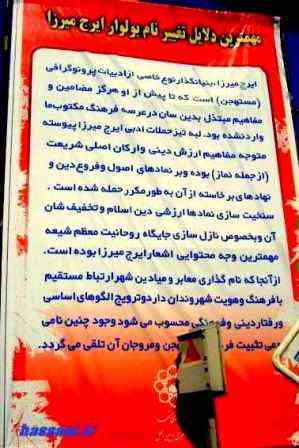 مهمترین دلایل تغییر نام بولوار ایرج میرزا
ایرج میرزا، بنیانگذار نوع خاصی از ادبیات پرونوگرافی
(مستهجن) است که تا پیش از او هرگز مضامین و
مفاهیم مبتذل بدین سان در عرصه فرهنگ مکتوب ما
وارد نشده بود. لبه تیز حملات ادبی ایرج میرزا پیوسته
متوجه مفاهیم ارزش دینی وارکان اصلی شریعت
(از جمله نماز) بوده و بر نمادهای اصول وفروع دین و
نهادهای بر خاسته از آن به طور مکرر حمله شده است .
سنخیت سازی نمادها ارزشی دین اسلام و تخفیف شان
آن وبخصوص نازل سازی جایگاه روحانیت معظم شیعه
مهمترین وجه محتوایی اشعار ایرج میرزا بوده است.
از آنجا که نام گذاری معابر و میادین شهر ارتباط مستقیم
با فرهنگ وهویت شهروندان دارد وترویج الگوهای اساسی
ورفتار دینی وفرهنگی محسوب می شود وجود چنین نامی
تثبیت ومروجان آن تلقی می گردد.